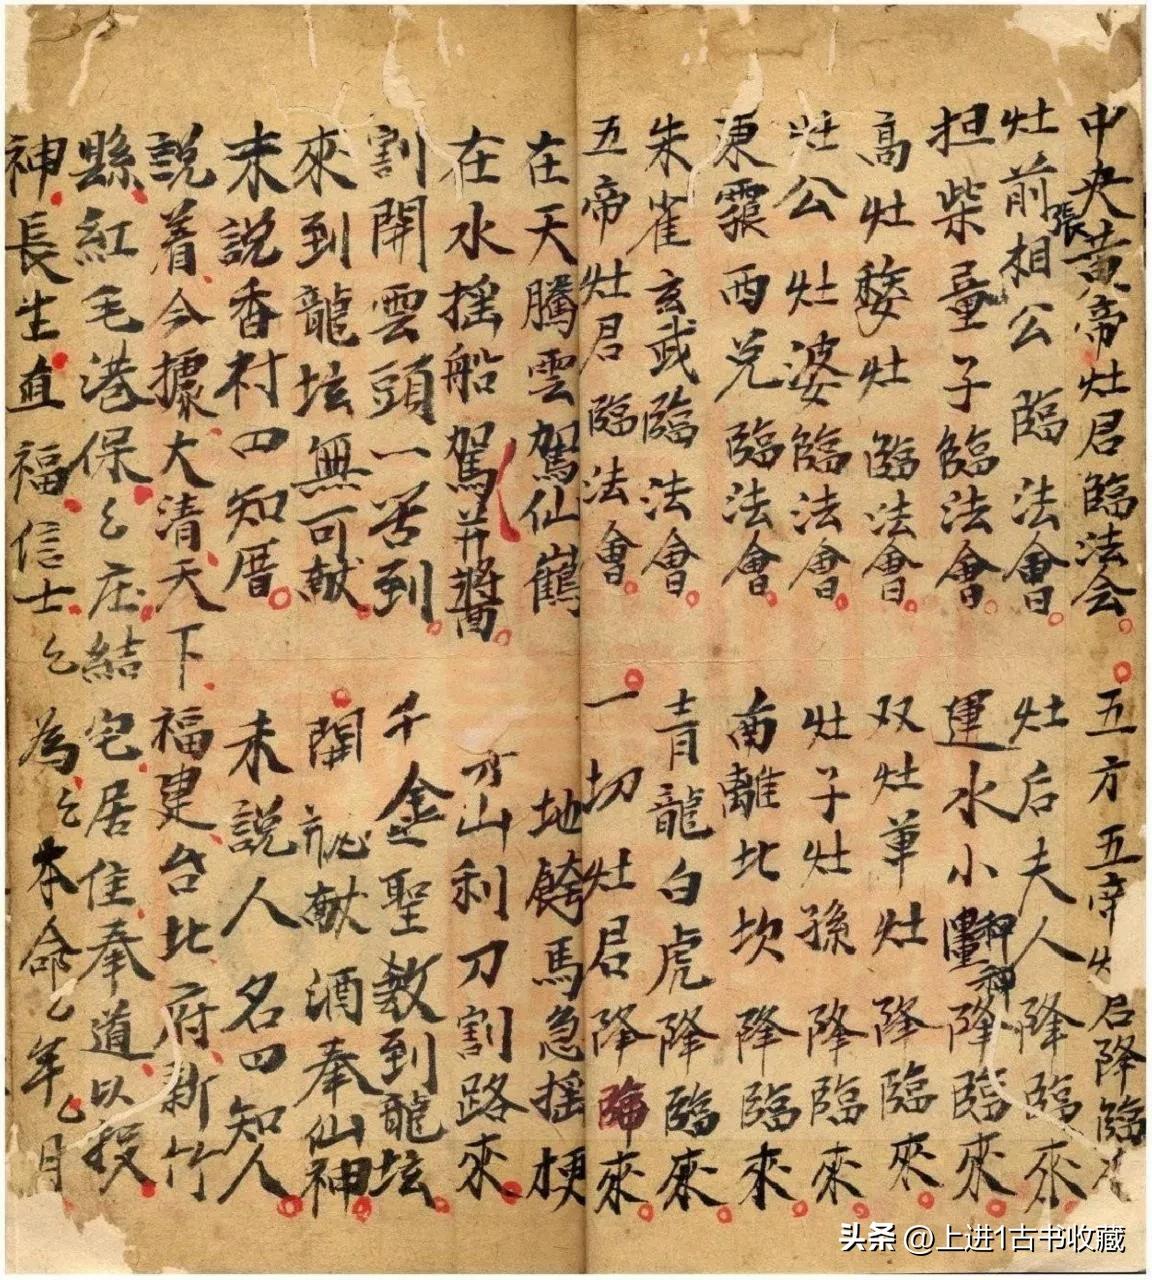 中央黃帝灶君臨法会 五方五帝灶君降臨來
灶前張相公臨法會 灶后夫人降臨來
担柴童子臨法會 運水小童神降臨來
高灶矮灶臨法會 双灶单灶降臨來
灶公灶婆臨法會 灶子灶孫降臨來
東震西兌臨法會 南離北坎降臨來
朱雀玄武臨法會 青龍白虎降臨來
五帝灶君臨法會 一切灶君降臨來
在天騰雲駕仙鶴 地跨馬急搖梗
在水搖船駕并槳 山利刀割路來
割開雲頭一苦到 千金聖教到龍坛
來到龍坛無可献 開瓶献酒奉仙神
未說香村四知厝 未說人名四知人
說着今據大清天下福建台北府新竹
縣紅毛港保乞庄結宅居住奉道以投
神長生直福信士乞為乞本命乞年乞月
头条 @上进1古书收藏